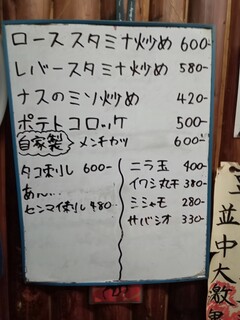 ロース スタミナ炒め 600-
レバースタミナ炒め 580-
ナスのミソ炒め 420-
ポテトコロッケ 500-
自家製 メンチカツ 600-
タコ刺し 600-
あん...
センマイ刺し 480-
ニラ玉 400-
イワシ丸干 380-
シシャモ 280-
サバシオ 330-
並中大激